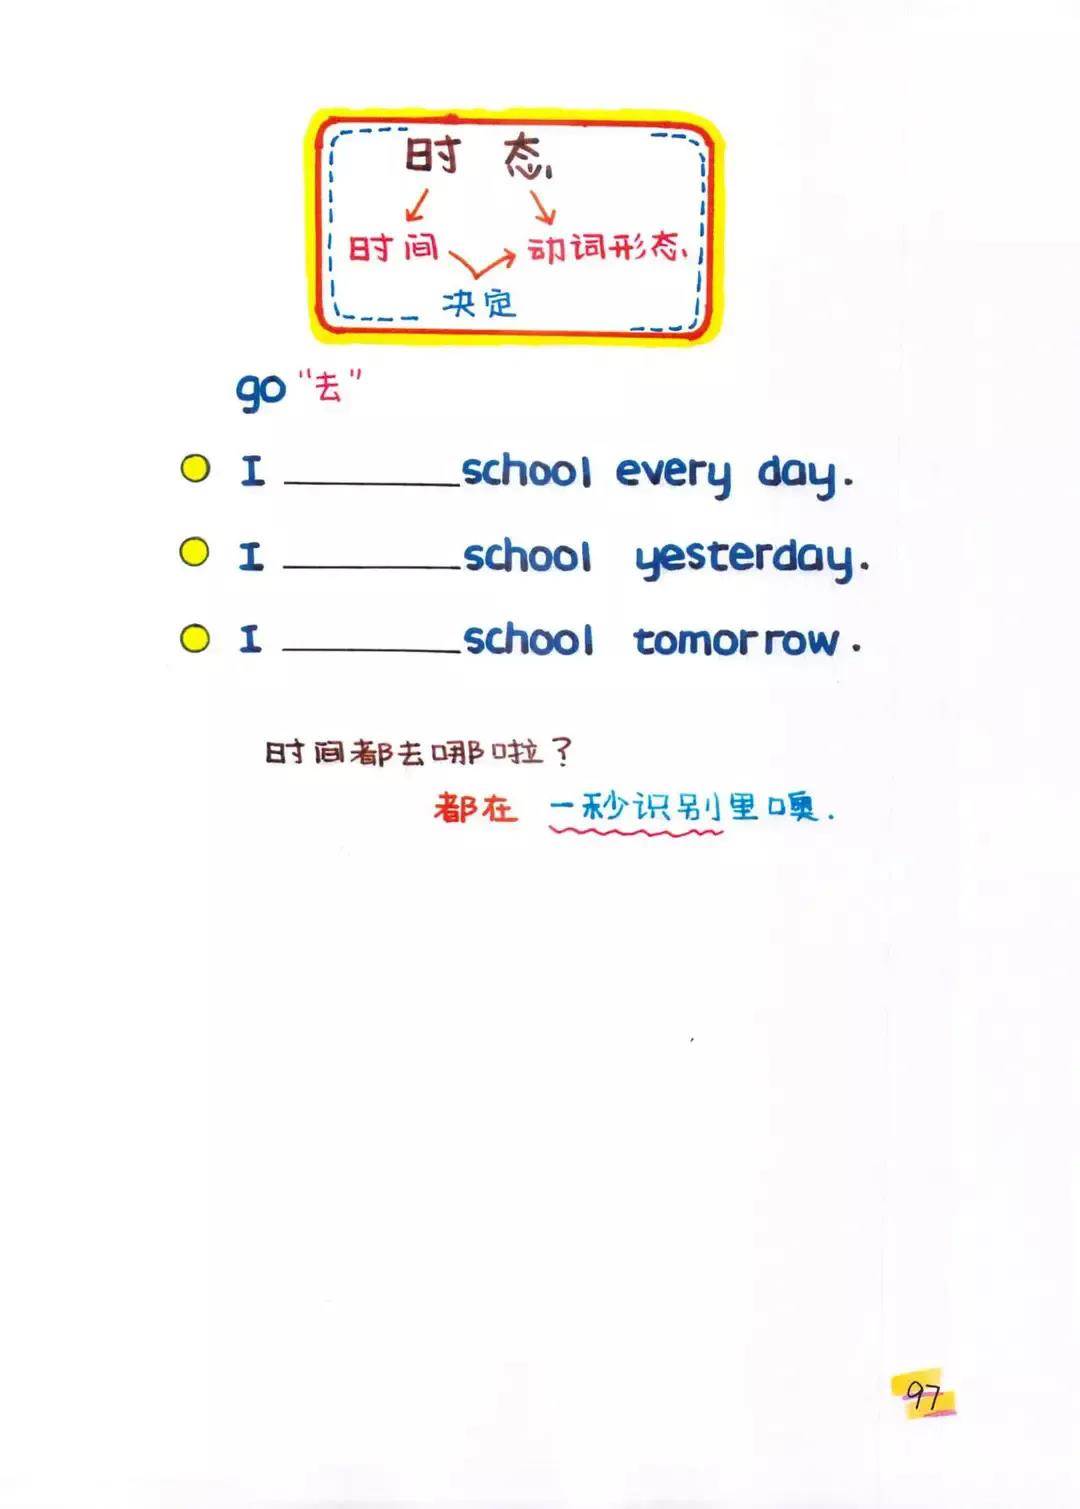 时 态
时间 动词形态
决定
go “去”
I ________ school every day.
I ________ school yesterday.
I ________ school tomorrow.
时间都去哪啦?
都在 一秒识别里噢.
97